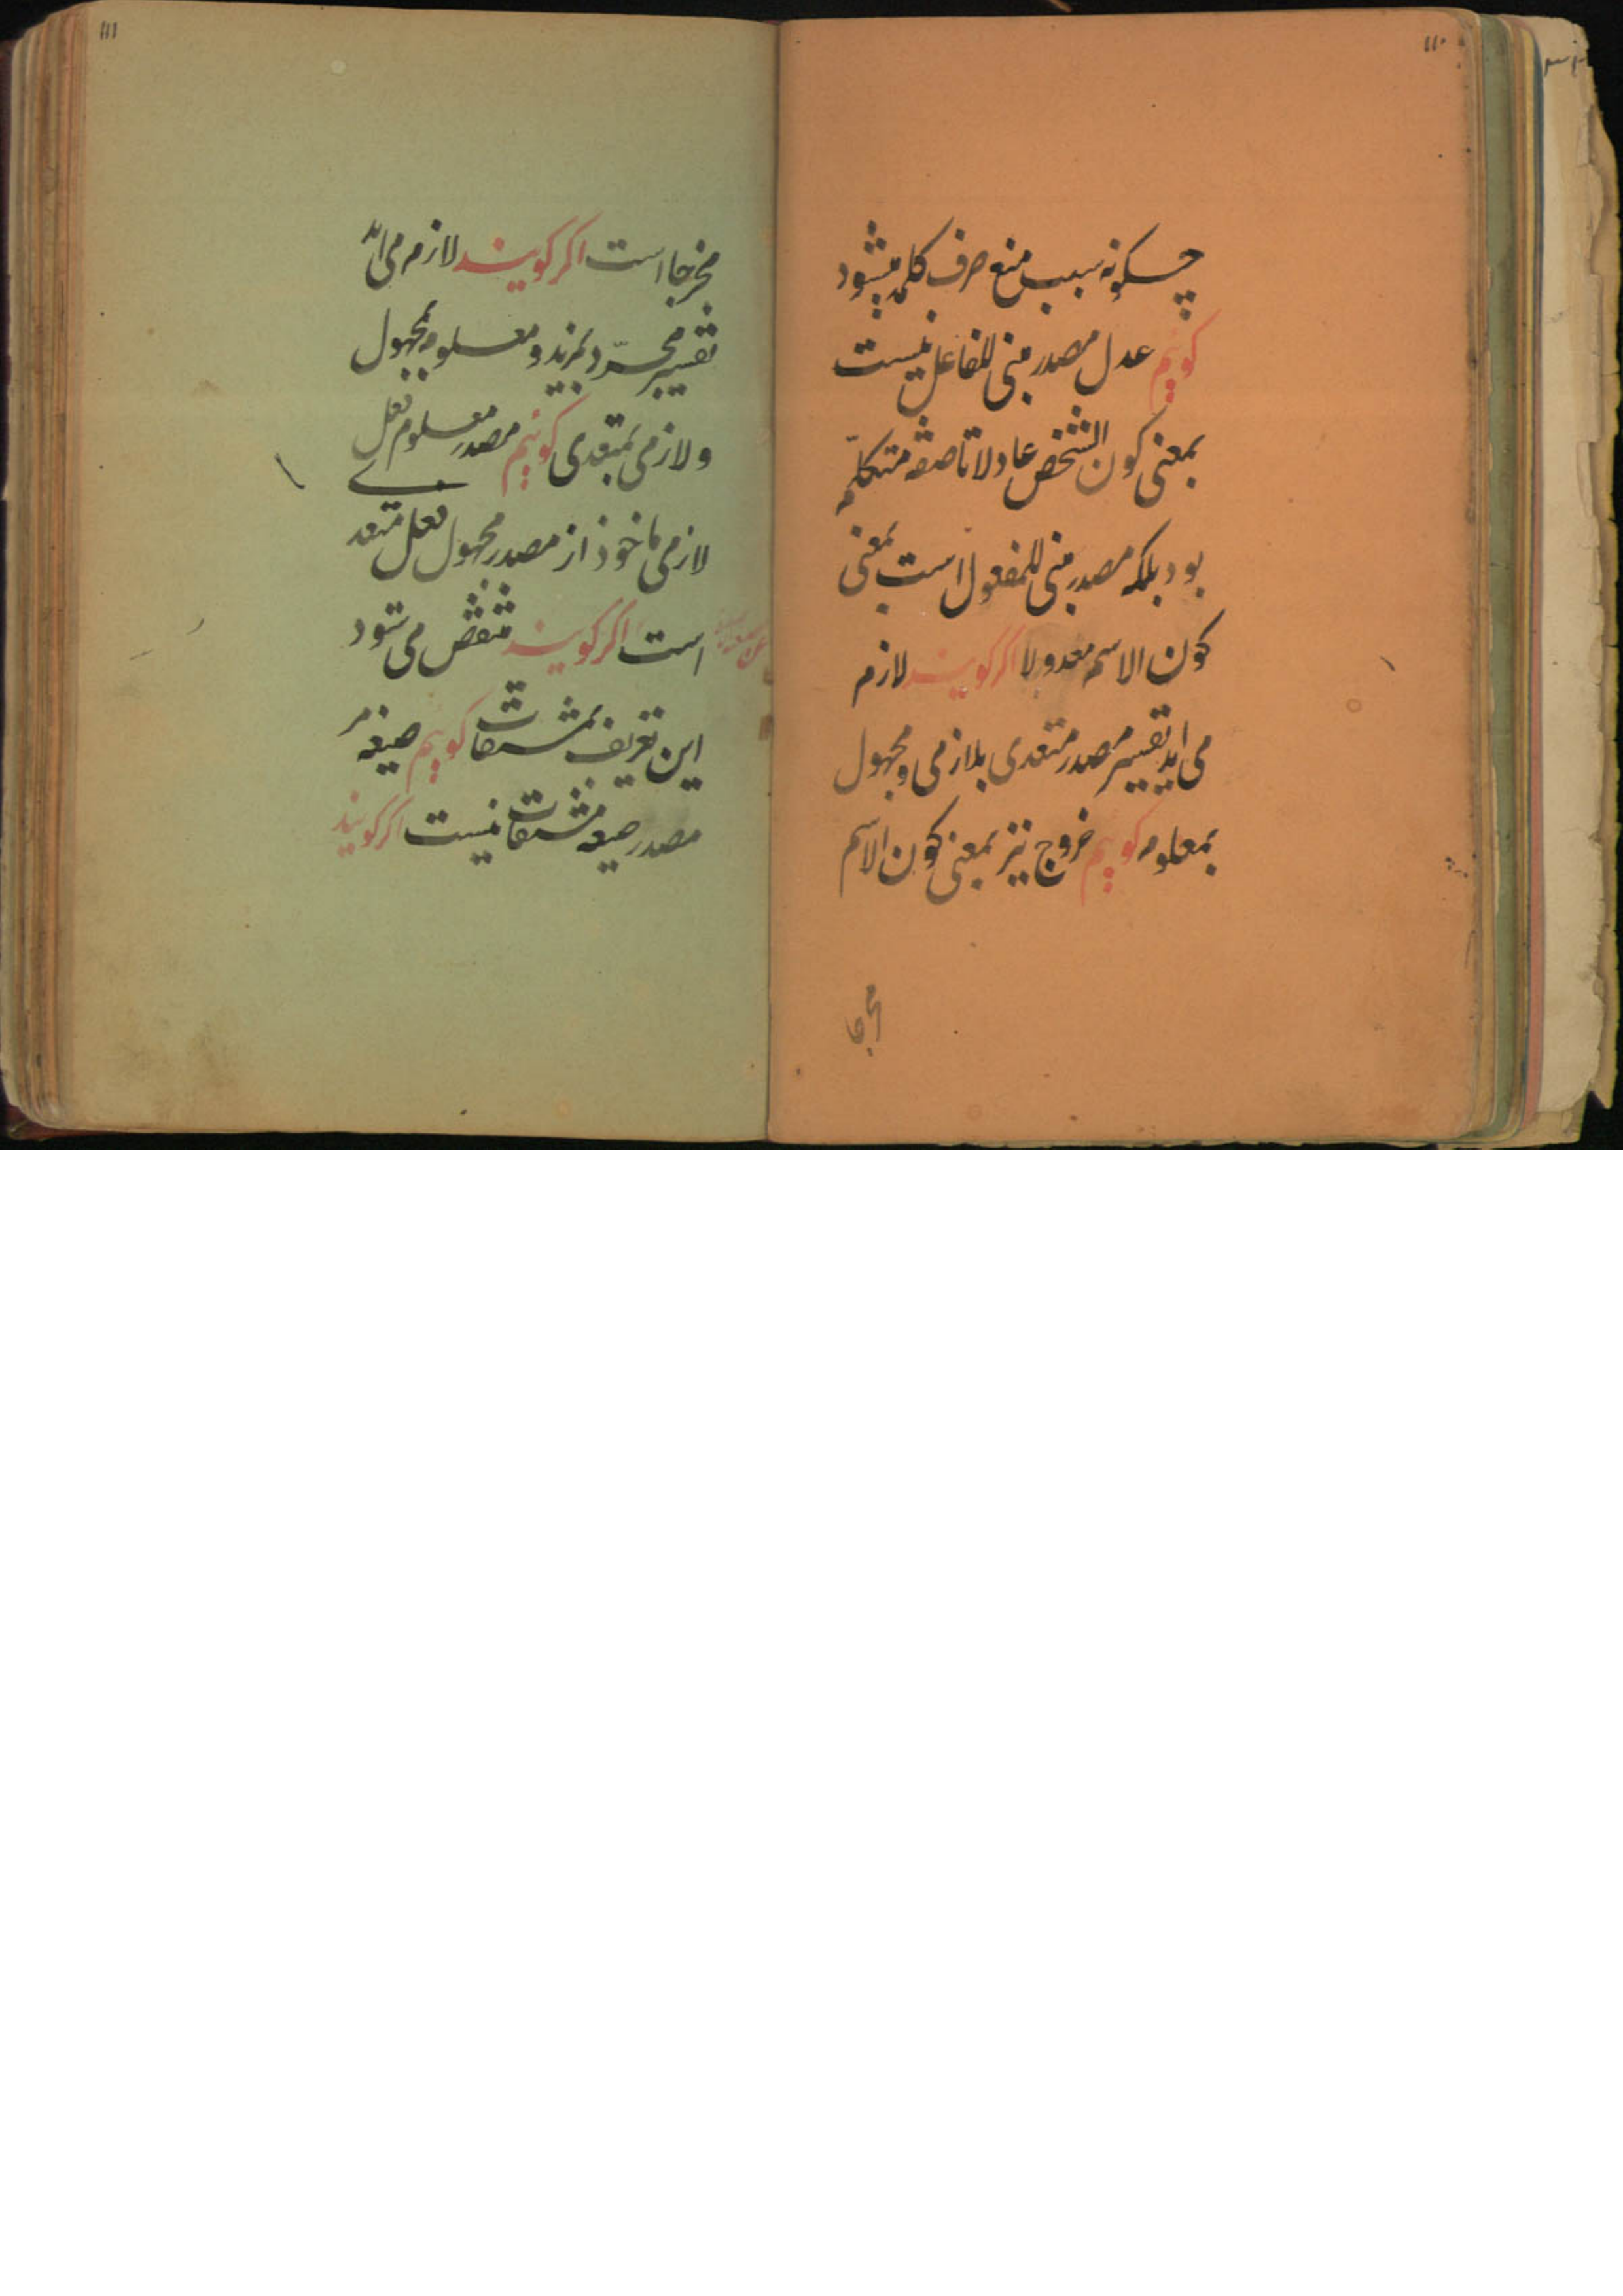 ۱۱۰
چگونه سبب منع صرف کلمه میشود
کوییم عدل مصدر مبنی للفاعل نیست
بمعنی کون الشخص عادلا تا صفة متکلم
بود بلکه مصدر مبنی للمفعول است بمعنی
کون الاسم معدولا اکر کویند لازم
می اید تفسیر مصدر متعدی بلازمی و مجهول
بمعلوم کوییم خروج نیز بمعنی کون الاسم
مخرجا
۱۱۱
مخرجا است اکر کویند لازم می اید
تفسیر مجرّد بمزید و معلوم بمجهول
و لازمی بمتعدی کوییم مصدر معلوم فعل
لازمی ماخوذ از مصدر مجهول فعل متعدے
است اکر کویند منتقض می شود
این تعریف بمشتقات کوییم صیغه
مصدر صیغه مشتقات نیست اکر کویند